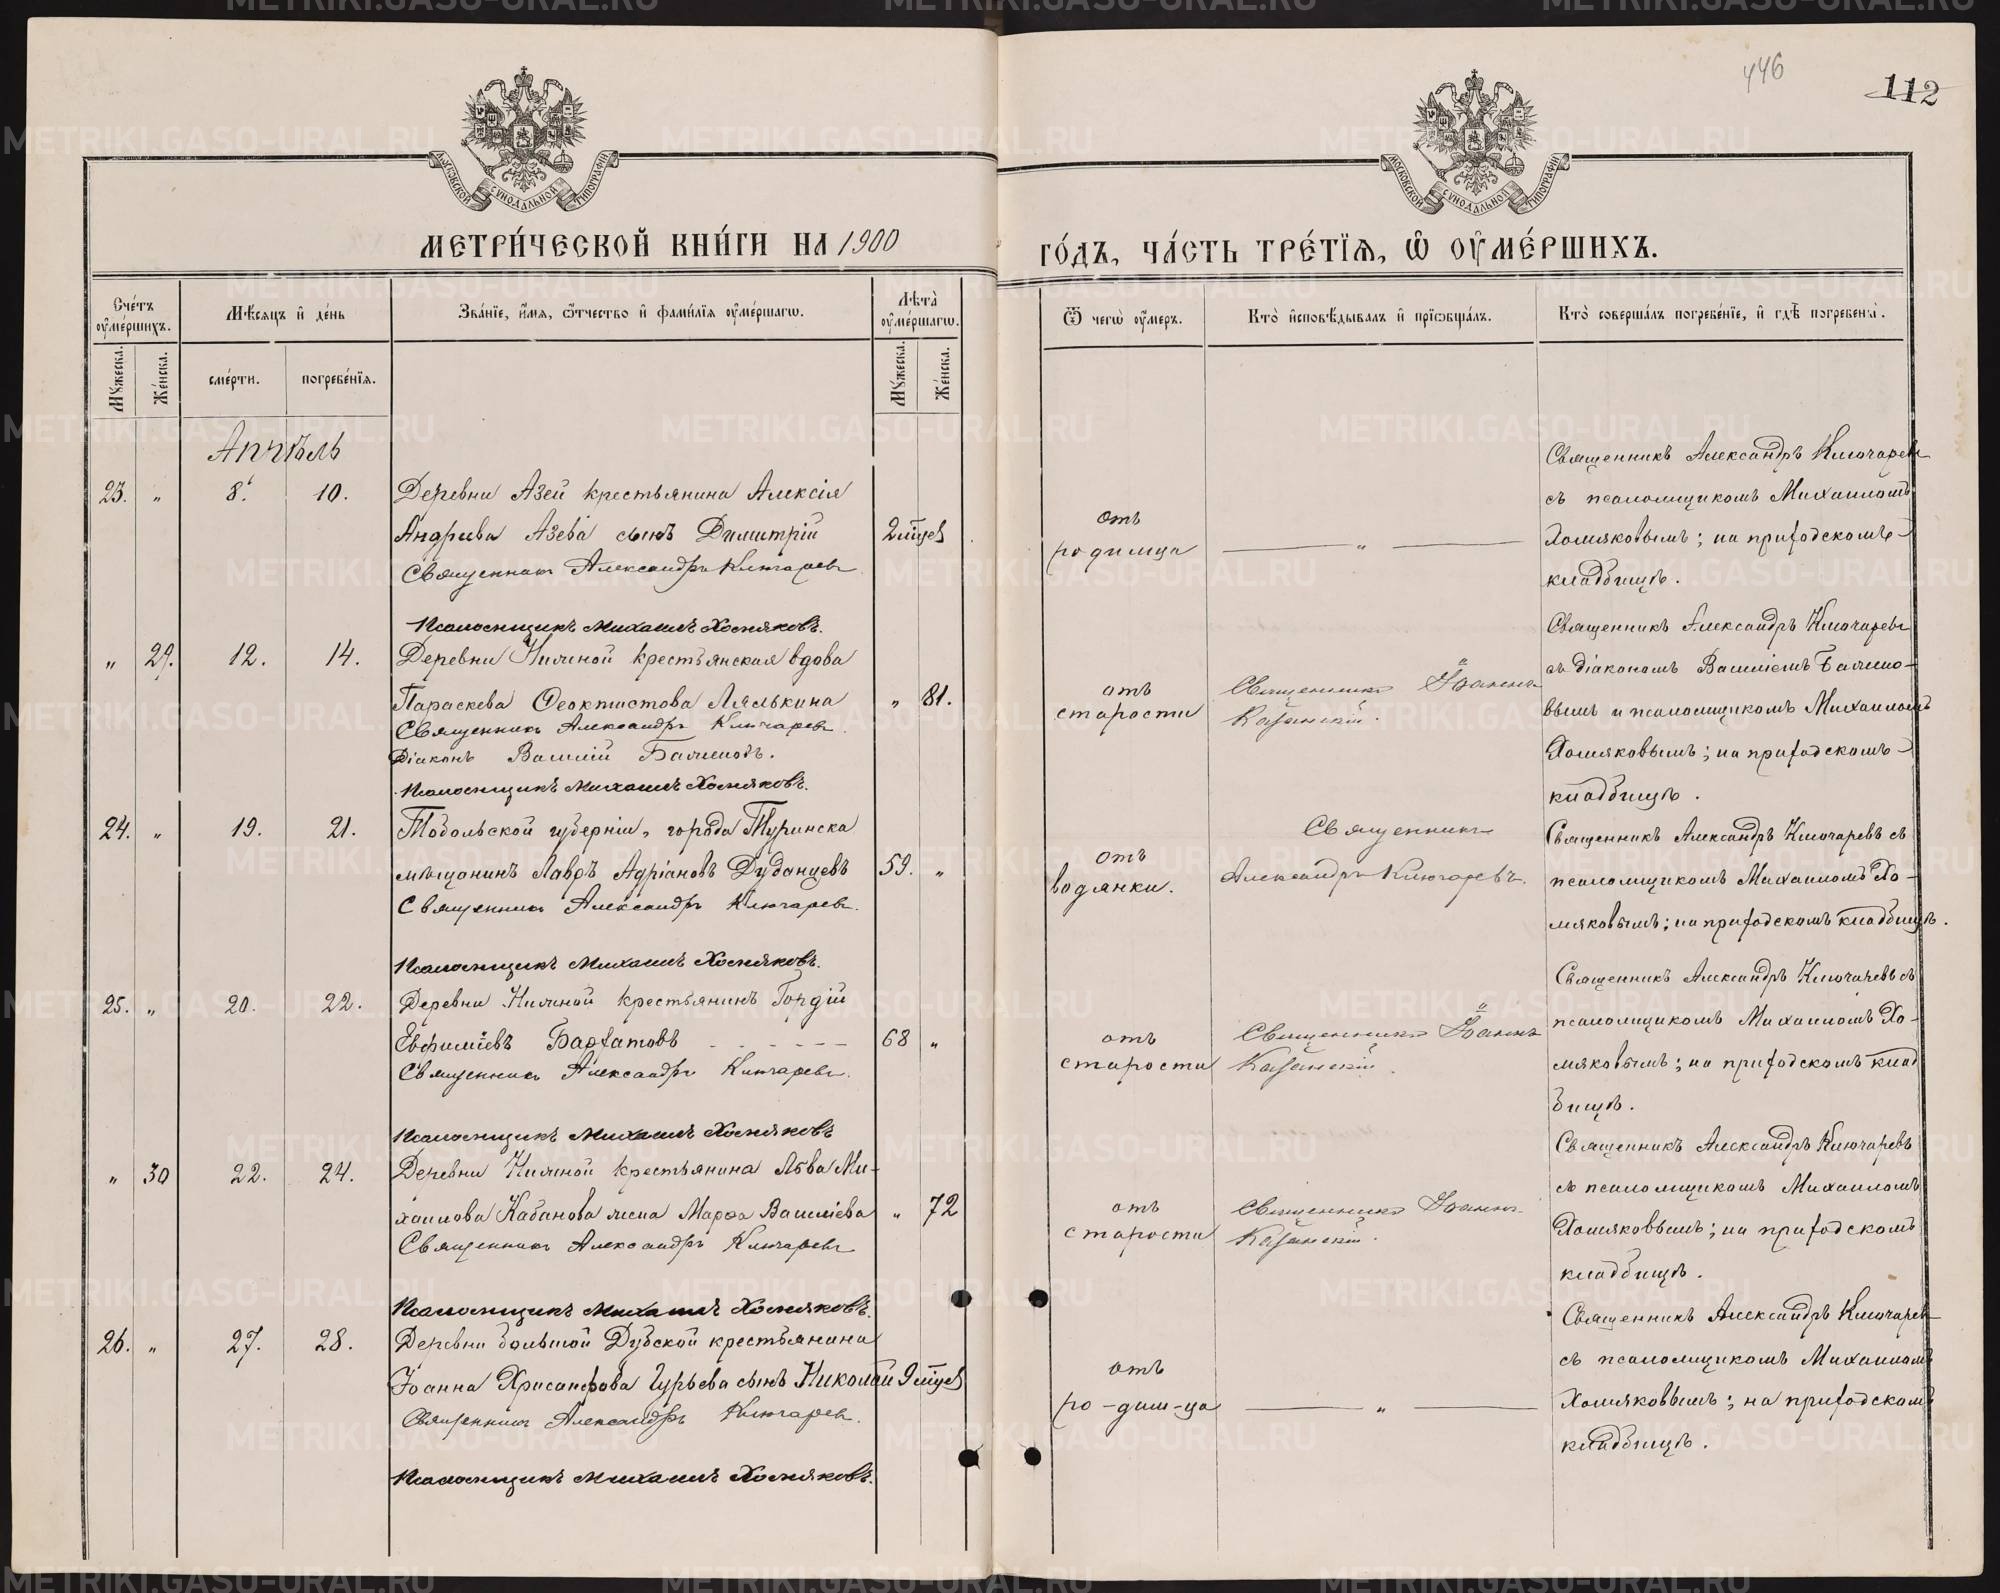 446
112
МОСКОВСКОЙ СУНОДАЛЬНОЙ ТИПОГРАФІИ
МОСКОВСКОЙ СУНОДАЛЬНОЙ ТИПОГРАФІИ
МЕТРИ́ЧЕСКОЙ КНИ́ГИ НА 1900
ГО́ДЪ, ЧА́СТЬ ТРЕ́ТІѦ, Ѡ ОУМЕ́РШИХЪ.
Сче́тъ оуме́ршихъ.
Мꙋ́жеска.
Же́нска.
Мѣ́сѧцъ и де́нь
сме́рти.
погребе́нїѧ.
Зва́нїе, и́мѧ, ѻ́тчество и фами́лїѧ оуме́ршагѡ.
Лѣта̀ оуме́ршагѡ.
Мꙋ́жеска.
Же́нска.
Ѿ чегѡ̀ оу́меръ.
Кто̀ и҆сповѣ́дывалъ и҆ прїѡбща́лъ.
Кто̀ соверша́лъ погребе́нїе, и҆ гдѣ̀ погребены̀.
Апрѣль
23. „ 8. 10. Деревни Азей крестьянина Алексія
Андреева Азева сынъ Димитрій 2 мѣсцев
Священник Александръ Ключаревъ
Псаломщикъ Михаилъ Хомяковъ.
отъ
родимца
— „ —
Священникъ Александръ Ключаревъ
съ псаломщикомъ Михаиломъ
Хомяковымъ; на приходскомъ
кладбищѣ.
„ 29. 12. 14. Деревни Киличной крестьянская вдова
Параскева Феоктистова Лялькина „ 81.
Священник Александръ Ключаревъ.
Діаконъ Василій
Псаломщикъ Михаилъ Хомяковъ.
отъ
старости
Священникъ Іоаннъ
Казанскій.
Священникъ Александръ Ключаревъ
съ діакономъ Василіемъ
вымъ и псаломщикомъ Михаиломъ
Хомяковымъ; на приходскомъ
кладбищѣ.
24. „ 19. 21. Тобольской губерніи, города Туринска
мѣщанинъ Лавръ Адріановъ Дубанцевъ 59. „
Священник Александръ Ключаревъ.
Псаломщикъ Михаилъ Хомяковъ.
отъ
водянки.
Священник
Александръ Ключаревъ.
Священникъ Александръ Ключаревъ съ
псаломщикомъ Михаиломъ Хо-
мяковымъ; на приходскомъ кладбищѣ.
25. „ 20. 22. Деревни Киличной крестьянинъ Гордій
Евфиміевъ Бархатовъ 68 „
Священник Александръ Ключаревъ.
Псаломщикъ Михаилъ Хомяковъ
отъ
старости
Священникъ Іоаннъ
Казанскій.
Священникъ Александръ Ключаревъ съ
псаломщикомъ Михаиломъ Хо-
мяковымъ; на приходскомъ клад
бищѣ.
„ 30 22. 24. Деревни Киличной крестьянина Льва Ми-
хаилова Кабанова жена Марѳа Василіева „ 72
Священник Александръ Ключаревъ
Псаломщикъ Михаилъ Хомяковъ.
отъ
старости
Священникъ Іоаннъ
Казанскій.
Священникъ Александръ Ключаревъ
съ псаломщикомъ Михаиломъ
Хомяковымъ; на приходскомъ
кладбищѣ.
26. „ 27. 28. Деревни Большой Дубской крестьянина
Іоанна Хрисанфова Гурьева сынъ Николай 9 мѣсцев
Священник Александръ Ключарев.
Псаломщикъ Михаилъ Хомяковъ.
отъ
ро-дим-ца
— „ —
Священникъ Александръ Ключарев
съ псаломщикомъ Михаиломъ
Хомяковымъ; на приходскомъ
кладбищѣ.
METRIKI.GASO-URAL.RU